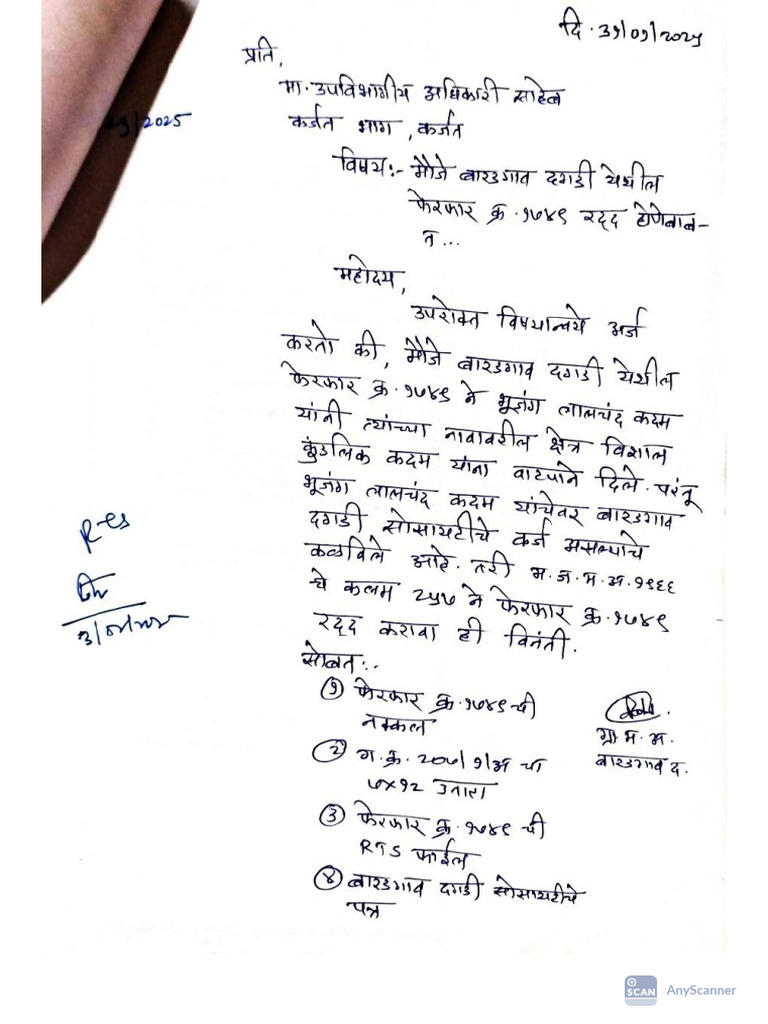 दि. ३१/०१/२०२५
प्रति,
मा. उपविभागीय अधिकारी साहेब
/2025
कर्जत भाग, कर्जत
विषय:- मौजे बारडगाव दगडी येथील
फेरफार क्र. १७४९ रद्द होणेबाब-
त...
महोदय,
उपरोक्त विषयान्वये अर्ज
करतो की, मौजे बारडगाव दगडी येथील
फेरफार क्र. १७४९ ने भूजंग लालचंद कदम
यांनी त्यांच्या नावावरील क्षेत्र विशाल
कुंडलिक कदम यांना वाटपाने दिले. परंतू
भूजंग लालचंद कदम यांचेवर बारडगाव
दगडी सोसायटीचे कर्ज असल्याचे
कळविले आहे. तरी म.ज.म.अ. १९६६
चे कलम २५७ ने फेरफार क्र. १७४९
रद्द करावा ही विनंती.
सोबत:-
① फेरफार क्र. १७४९ ची
नक्कल
② ग.क्र. २०७/१/अ चा
७x१२ उतारा
③ फेरफार क्र. १७४९ ची
RTS फाईल
④ बारडगाव दगडी सोसायटीचे
पत्र
ग्रा म. अ.
बारडगाव द.
SCAN AnyScanner